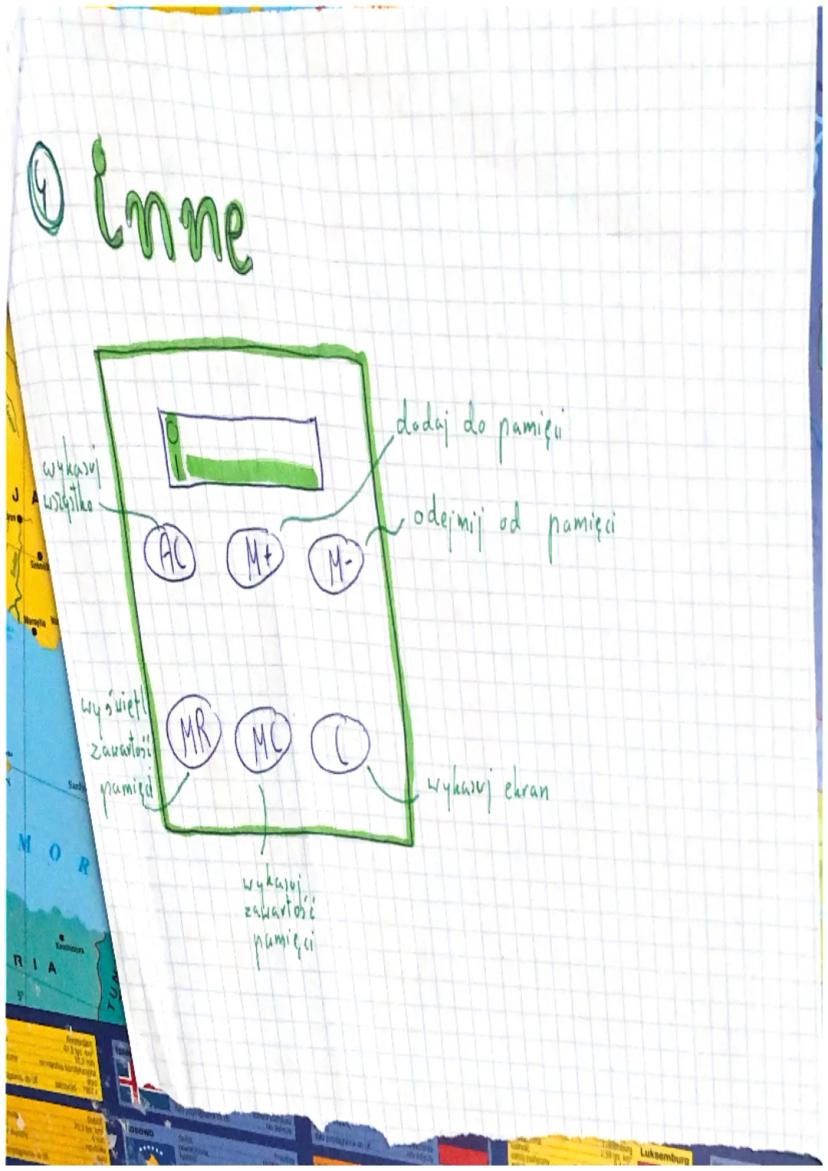 4 inne
0
1
dodaj do pamięci
wykasuj
wszystko
odejmij od pamięci
AC M+ M-
wyświetl
zawartość
pamięci
MR MC C
wykasuj ekran
wykasuj
zawartość
pamięci
J A
M O R
R I A
Luksemburg